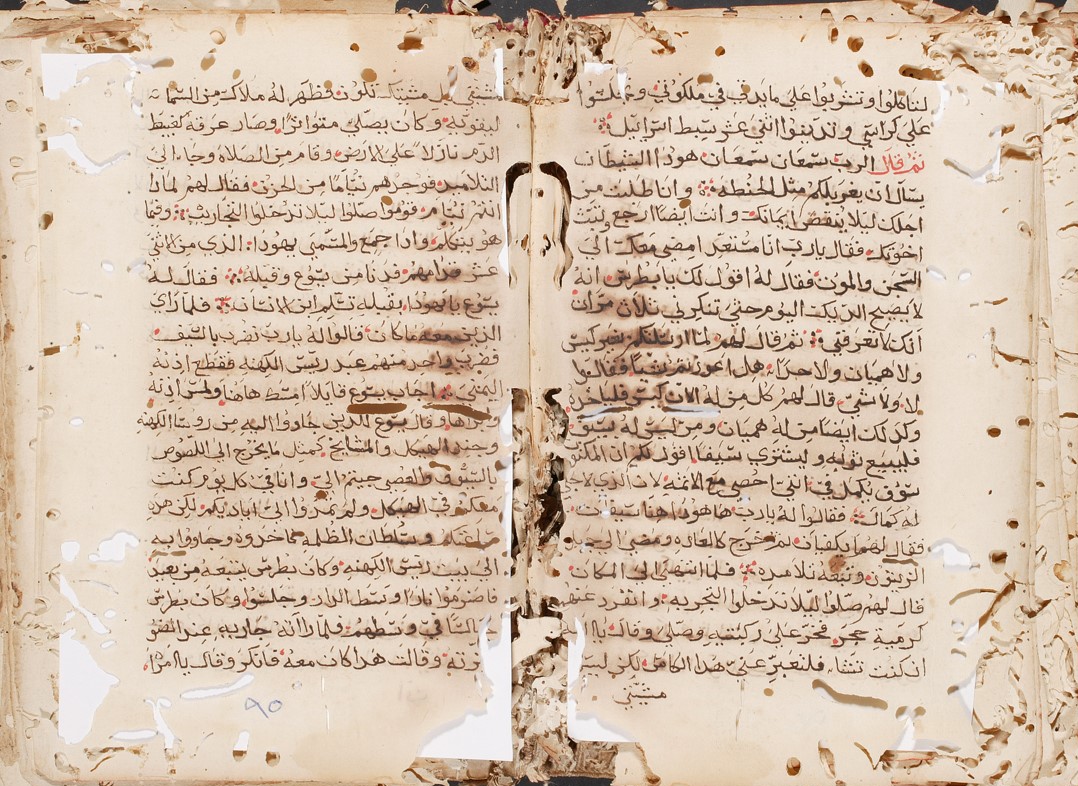 لتاكلوا وتشربوا على مايدتى في ملكوتي وتجلسوا
على كراسي وتدينوا اثني عشر سبط اسراييل
ثم قال الرب سمعان سمعان هودا الشيطان
سال ان يغربلكم مثل الحنطه وانا طلبت من
اجلك ليلا ينقص ايمانك وانت ايضا ارجع وثبت
اخوتك فقال يارب انا مستعد امضى معك الى
السجن والموت فقال له اقول لك يا بطرس انه
لا يصيح الديك اليوم حتى تنكرني ثلاث مرات
انك لا تعرفني ثم قال لهم لما ارسلتكم بغير كيس
ولا هميان ولا حدا هل اعوزتم شيا فقالوا
له ولا شي قال لهم كل من له الان كيس فلياخده
وكدلك ايضا من له هميان ومن ليس له سيف
فليبيع ثوبه ويشترى سيفا اقول لكم ان المكتوب
سوف يكمل في انني احصى مع الاتمه لان الدى لاجلي
له كمال فقالوا له يارب ها هودا هنا سيفان
فقال لهم يكفيان ثم خرج كالعاده ومضى الى جبل
الزيتون وتبعه تلاميده فلما انتهى الى المكان
قال لهم صلوا ليلا تدخلوا التجربه وانفرد عنهم
كرمية حجر فخر على ركبتيه وصلى وقال يا ابه
ان كنت تشا فلتعبر عني هدا الكاس لكن ليس
مشيتي
مشيتي بل مشيتك تكون فظهر له ملاك من السما
ليقويه وكان يصلي متواترا وصار عرقه كعبيط
الدم نازلا على الارض وقام من الصلاه وجا الى
التلاميد فوجدهم نياما من الحزن فقال لهم لمادا
انتم نيام قوموا صلوا ليلا تدخلوا التجاريب وفيما
هو يتكلم وادا جمع والمسمى يهودا الدي من الاثني
عشر قدامهم فدنا من يسوع وقبله فقال له
يسوع يا يهودا بقبله تسلم ابن الانسان فلما راى
الدين معه ما كان قالوا له يارب نضرب بالسيف
فضرب واحد منهم عبد ريس الكهنه فقطع ادنه
اليمنى اجاب يسوع قايلا امسك هاهنا ولمس ادنه
وقال يسوع للدين جاووا اليه من روسا الكهنه
وجند الهيكل والمشايخ كمثل ما يخرج الى اللصوص
بالسيوف والعصي جيتم الي وانا في كل يوم كنت
معكم في الهيكل ولم تمدوا الي اياديكم لكن هده
ساعتكم وسلطان الظلمه فاخدوه وجاووا به
الى بيت ريس الكهنه وكان بطرس يتبعه من بعيد
فاضرموا نارا وسط الدار وجلسوا وكان بطرس
جالسا في وسطهم فلما راته جاريه عند الضو
وقالت هدا كان معه فانكر وقال يا امراه
٩٥